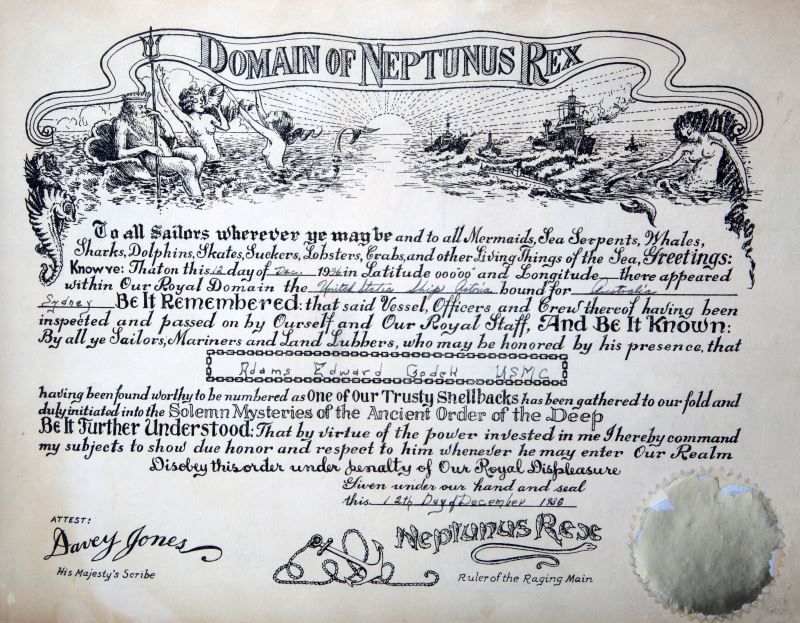 DOMAIN OF NEPTUNUS REX
To all Sailors wherever ye may be and to all Mermaids, Sea Serpents, Whales,
Sharks, Dolphins, Skates, Suckers, Lobsters, Crabs, and other Living Things of the Sea, Greetings:
Know ye: That on this 12 day of Dec. 1956 in Latitude 00°00' and Longitude there appeared
within Our Royal Domain the United States Ship bound for Australia
Sydney Be It Remembered: that said Vessel, Officers and Crew thereof having been
inspected and passed on by Ourself and Our Royal Staff, And Be It Known:
By all ye Sailors, Mariners and Land Lubbers, who may be honored by his presence, that
Adams Edward Godek USMC
having been found worthy to be numbered as One of Our Trusty Shellbacks has been gathered to our fold and
duly initiated into the Solemn Mysteries of the Ancient Order of the Deep
Be It Further Understood: That by virtue of the power invested in me I hereby command
my subjects to show due honor and respect to him whenever he may enter Our Realm
Disobey this order under penalty of Our Royal Displeasure
Given under our hand and seal
this 12th Day of December 1956
ATTEST:
Davey Jones
His Majesty's Scribe
Neptunus Rex
Ruler of the Raging Main